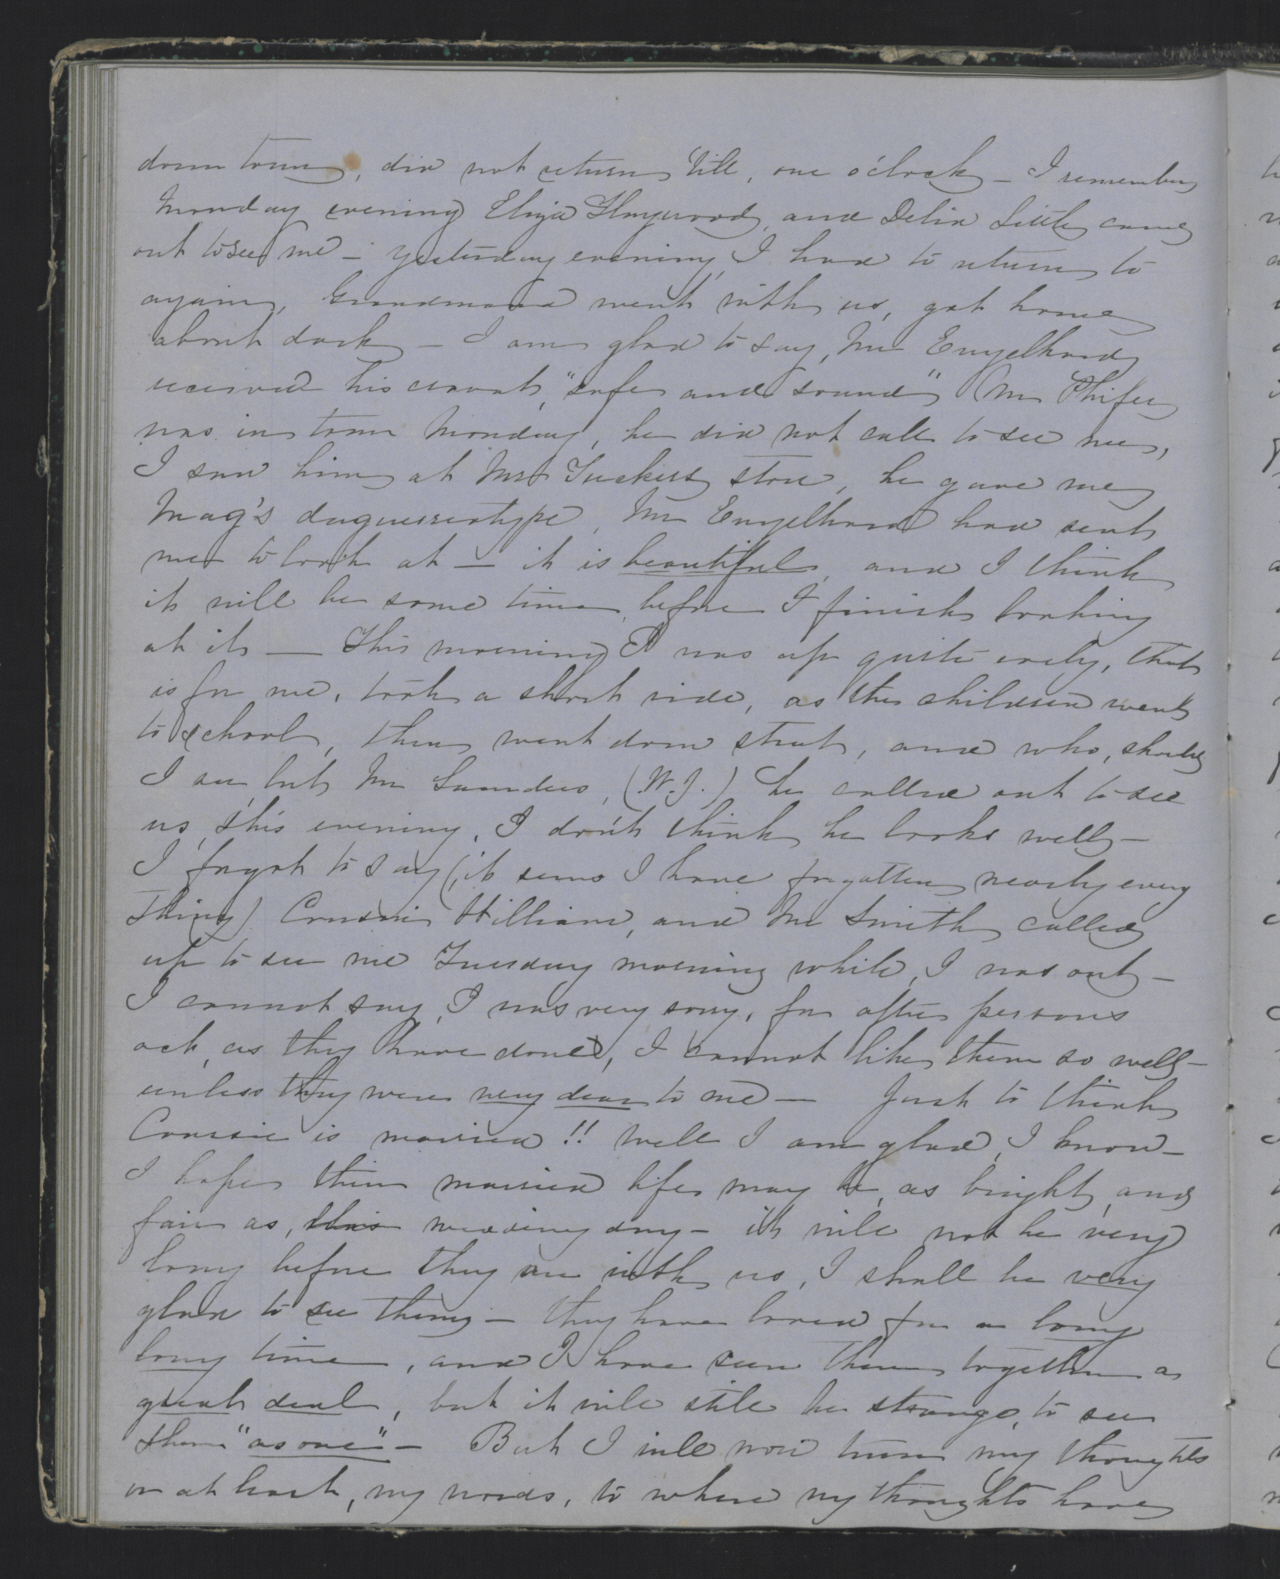 down town, did not return 'till, one o'clock – I remember
Monday evening Eliza Haywood, and Delia Little came
out to see me – yesterday evening, I had to return to
again, Grandmama went with us, got home
about dark – I am glad to say, Mr Engelhard
received his cravat, "safe and sound" Mr Phifer
was in town Monday, he did not call to see me,
I saw him at Mr Tuckers store, he gave me
Mag's daguerreotype, Mr Engelhard had sent
me to look at – it is beautiful, and I think
it will be some time before I finish looking
at it – This morning I was up quite early, that
is for me, took a short ride, as the children went
to school, then went down street, and who, should
I see but Mr Saunders, (W.J.) he called out to see
us, this evening, I don't think he looks well –
I forgot to say (it seems I have forgotten nearly every
thing) Cousin William, and Mr Smith called
up to see me Tuesday morning while, I was out –
I cannot say, I was very sorry, for after persons
act, as they have done, I cannot like them so well –
unless they were very dear to me – Just to think
Coussie is married!! Well I am glad, I know –
I hope their married life may be, as bright and
fair as, this wedding day – it will not be very
long before they are with us, I shall be very
glad to see them – they have loved for a long
long time, and I have seen them together a
great deal, but it will still be strange, to see
them "as one" – But I will now turn my thoughts
or at least, my words, to where my thoughts have